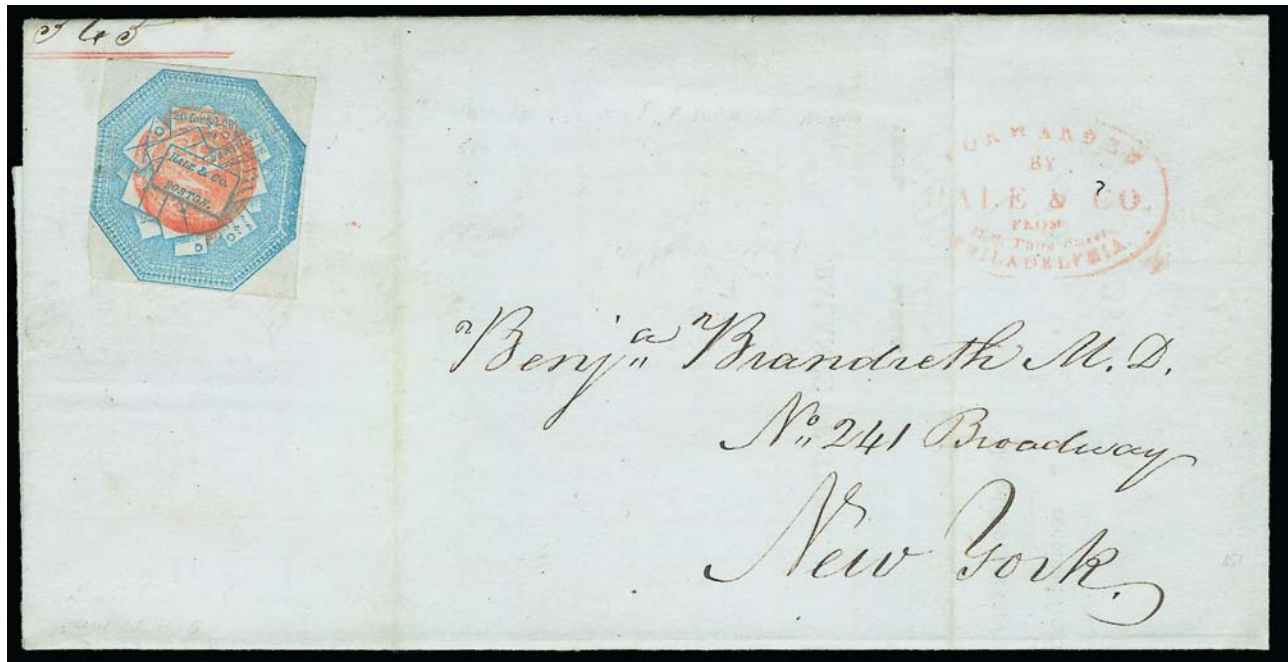 345
HALE & CO.
BOSTON.
FORWARDED
BY
HALE & CO.
FROM
Third Street
PHILADELPHIA
?
Benjᵃ Brandreth M. D.
Nº 241 Broadway
New York.